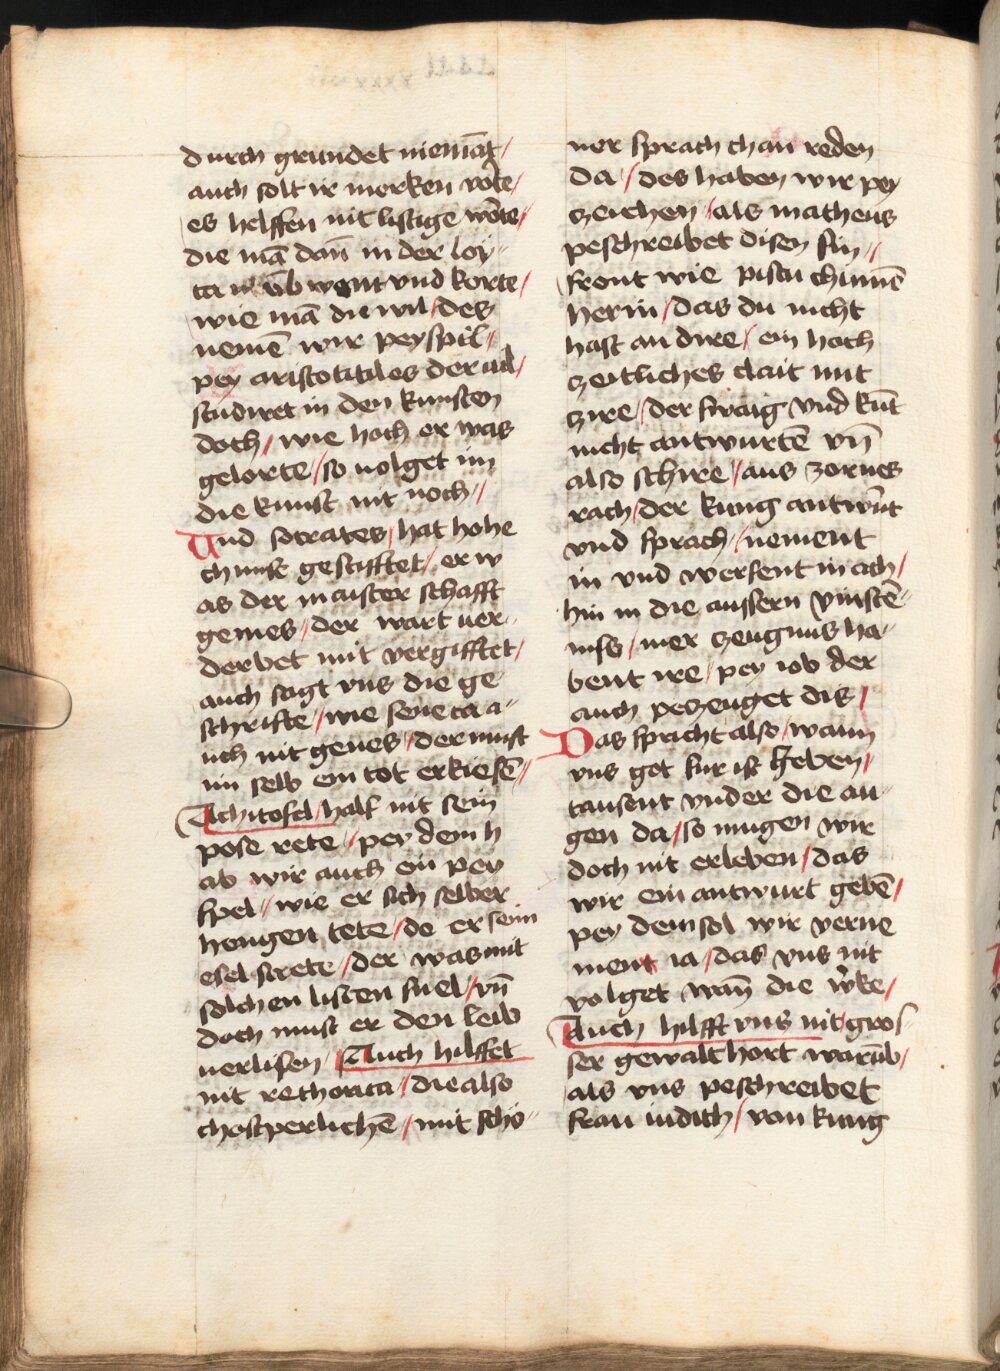 durch grundet niemāt /
auch solt ir merken vo͛te /
es helffen nit listige wo͛te /
die mā dan̄ in der loy-
ca v̄b went vnd korte /
wie mā die wil / des
nemē wir peyspil /
pey aristotitiles der uil /
studiret in den kunsten
doch / wie hoch er was
gelorte / so uolget im
die kunst nit noch //
Und socrates / hat hohe
chunst gestifftet / er w
as der maister schafft
genies / der wart uer-
derbet mit vergifftet /
auch sagt vns die ge-
schrifte / wie seneca a-
uch nit genes / der must
im selb ein tot erkiesē /
Achitofel / half nit sein
pose rete / pey dem h
ab wir auch ein pey
spel / wie er sich selber
hengen tete / do er seim
esel strete / der was mit
solchen listen snel / vn̄
doch must er den leib
uerlisen / Auch hilffet
nit rethorica / die also
chosperlichē / mit scho-
ner sprach chan reden
da / des haben wir pey
zeichen / als matheus
peschreibet disen sin //
freut wie pistu chumē
herin / das du nicht
hast an dire / ein hoch
zeitliches clait mit
zire / der swaig vnd kūt
nicht antwurtē vn̄
also schire / aus zornes
rach / der kung antwu͛t
vnd sprach / nement
in vnd werfent in ach /
hin in die aussern vinstē-
niss / mer zeugnus ha-
bent ire / pey iob der
auch pezeuget dis /
Das spricht also / wann
vns got fur ist heben /
tausent vnder die au-
gen da / so mugen wir
doch nit erleben / das
wir ein antwurt gebē /
pey dem sol wir verne
ment ia / das vns nit
volget wan̄ die w͛ke /
Auch hilfft vns nit gros-
ser gewalt hort warūb /
als vns peschreibet
frau iudith / von kung